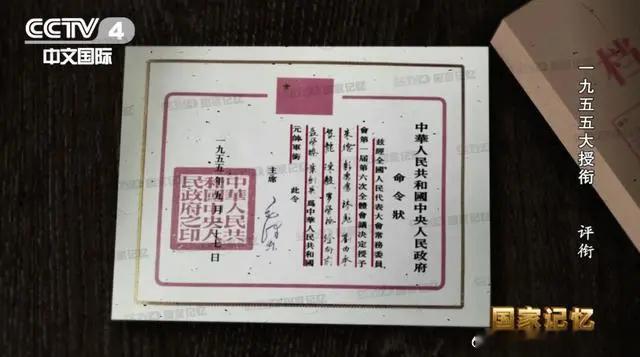 CCTV 4
中文国际
档
一九五五大授衔
评衔
中華人民共和國中央人民政府
命令狀
茲經全國人民代表大會常務委員
會第一屆第六次全體會議決定授予
朱德 彭德懷 林彪 劉伯承
賀龍 陳毅 羅榮桓 徐向前
聶榮臻 葉劍英 爲中華人民共和國
元帥軍銜 此令
主席
一九五五年九月 十七日
中華人民共
和國中央人
民政府之印
国家记忆